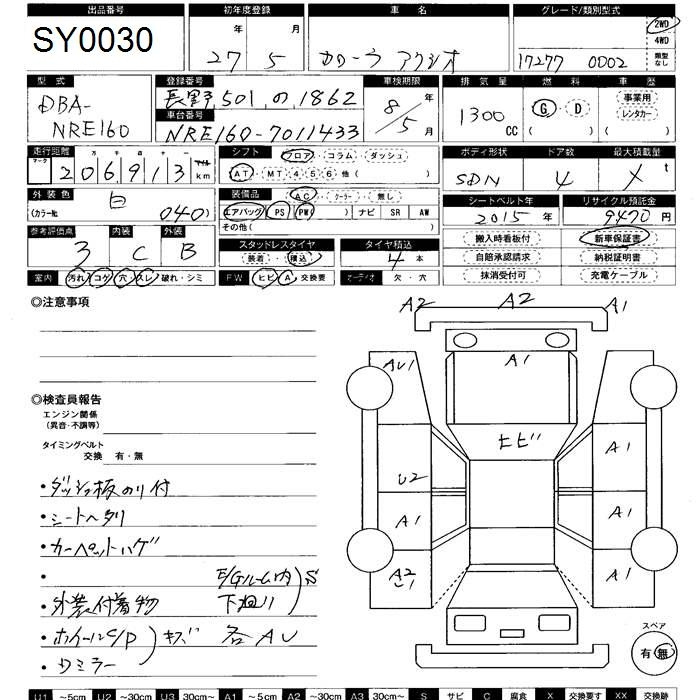 出品番号 初年度登録 車名 グレード/類別型式
SY0030 年 月 2WD
27 5 カローラ アクシオ 17277 0002 4WD
類型なし
型式 登録番号 車検期限 排気量 燃料 車歴
DBA- 長野 501 の 1862 8年 1300 G・D 事業用
車台番号 レンタカー
NRE160 NRE160-7011433 5月 CC ( ) ( )
走行距離 シフト フロア・コラム・ダッシュ ボディ形状 ドア数 最大積載量
マーク 十 万 千 百 十 一 マイル
206913 km AT・MT 4・5・6 ( ) SDN 4 X t
外装色 装備品 AC・クーラー・無し シートベルト年 リサイクル預託金
白 エアバック PS PW( ) ナビ SR AW 2015年 9470円
(カラー№ 040) その他( )
参考評価点 内装 外装 スタッドレスタイヤ タイヤ積込 搬入時看板付 新車保証書
3 C B 装着・積込 4本 自賠承認請求 納税証明書
室内 汚れ・コゲ・穴・スレ・破れ・シミ FW ヒビ・A・交換要 オーディオ 欠・穴 抹消受付可 充電ケーブル
◎注意事項
A2 A2 A1
AU1 A1
◎検査員報告
エンジン関係
(異音・不調等)
ヒビ A1
タイミングベルト
交換 有・無
U2
・ダッシュ板のり付
・シートヘタリ
A1 A1
・カーペットハゲ
・ E/Gルーム内
A2 A1
・外装付着物 下廻り ) S
・ホイールC/P ) キズ 各AU
スペア
・Wミラー
有・無
U1 ~5cm U2 ~30cm U3 30cm~ A1 ~5cm A2 ~30cm A3 30cm~ S サビ C 腐食 X 交換要す XX 交換跡